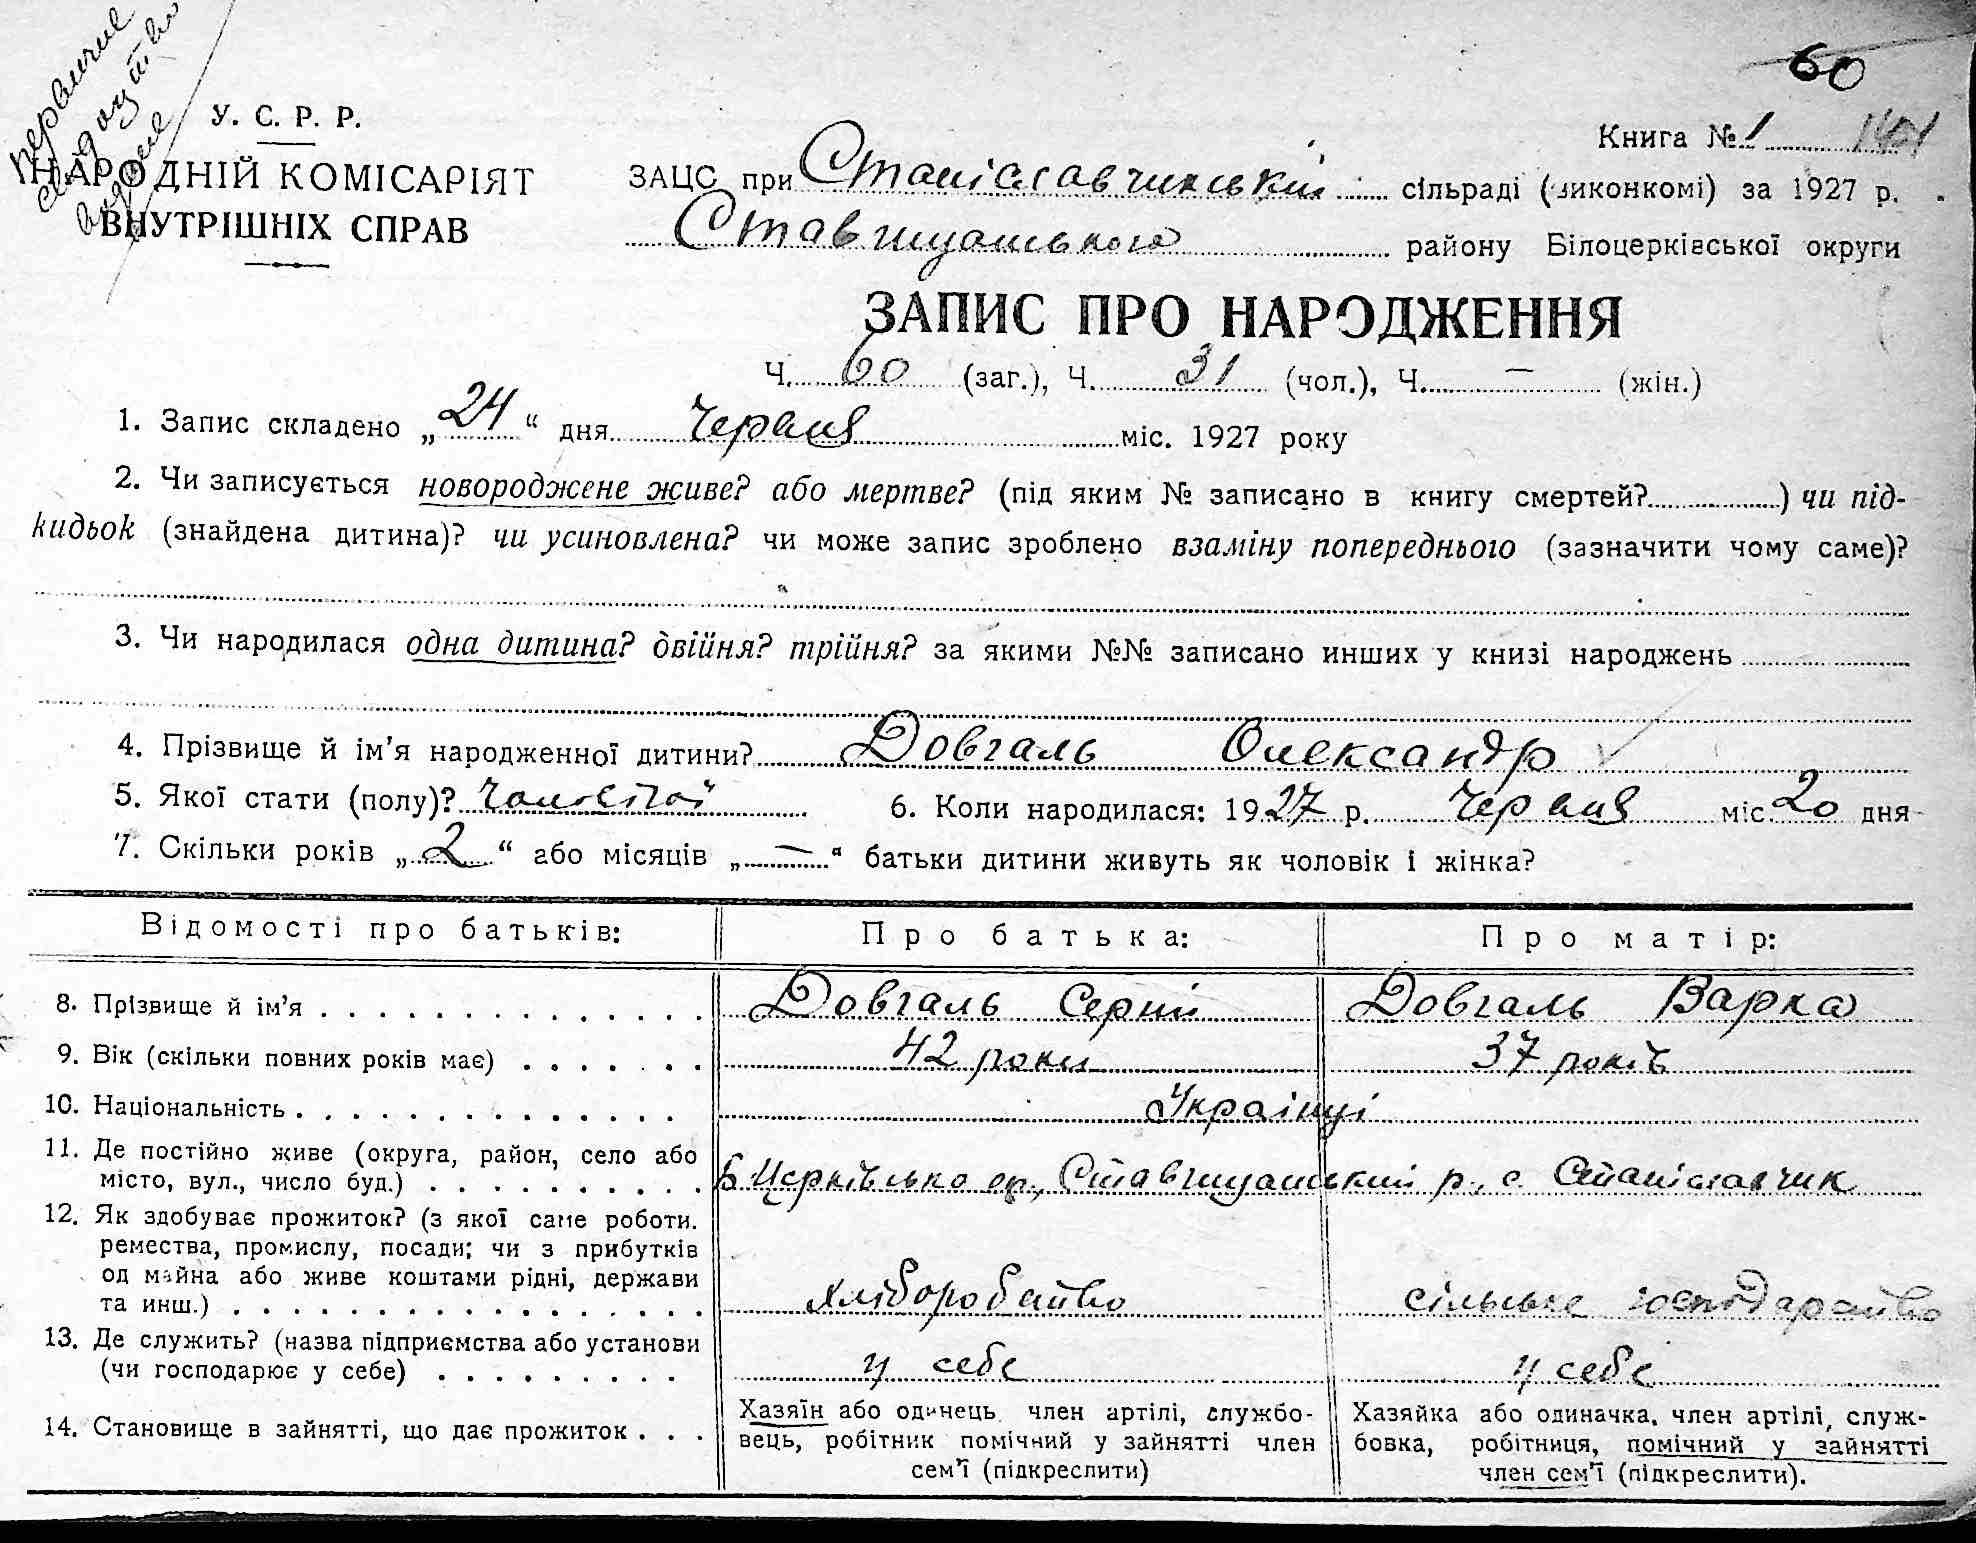 первичне
свідоцтво
видане
60
У. С. Р. Р.
НАРОДНІЙ КОМІСАРІЯТ
ВНУТРІШНІХ СПРАВ
Книга № 1
ЗАЦС при Станіславчикській сільраді (виконкомі) за 1927 р.
Ставищанського району Білоцерківської округи
ЗАПИС ПРО НАРОДЖЕННЯ
Ч. 60 (заг.), Ч. 31 (чол.), Ч. — (жін.)
1. Запис складено „24“ дня Червня міс. 1927 року
2. Чи записується новороджене живе? або мертве? (під яким № записано в книгу смертей?) чи під-
кидьок (знайдена дитина)? чи усиновлена? чи може запис зроблено взаміну попереднього (зазначити чому саме)?
3. Чи народилася одна дитина? двійня? трійня? за якими №№ записано инших у книзі народжень
4. Прізвище й ім’я народженної дитини? Довгаль Олександр
5. Якої стати (полу)? Чоловічої 6. Коли народилася: 1927 р. Червня міс. 20 дня
7. Скільки років „2“ або місяців „—“ батьки дитини живуть як чоловік і жінка?
Відомості про батьків: Про батька: Про матір:
8. Прізвище й ім’я Довгаль Сергій Довгаль Варка
9. Вік (скільки повних років має) 42 роки 37 років
10. Національність Українці
11. Де постійно живе (округа, район, село або
місто, вул., число буд.) Б Церківсько ок., Ставищанський р., с. Станіславчик
12. Як здобуває прожиток? (з якої саме роботи.
ремества, промислу, посади; чи з прибутків
од майна або живе коштами рідні, держави
та инш.) хліборобство сільське господарство
13. Де служить? (назва підприємства або установи
(чи господарює у себе) у себе у себе
14. Становище в зайнятті, що дає прожиток
Хазяїн або одинець член артілі, службо-
вець, робітник помічний у зайнятті член
сем’ї (підкреслити)
Хазяйка або одиначка. член артілі, служ-
бовка, робітниця, помічний у зайнятті
член сем’ї (підкреслити).